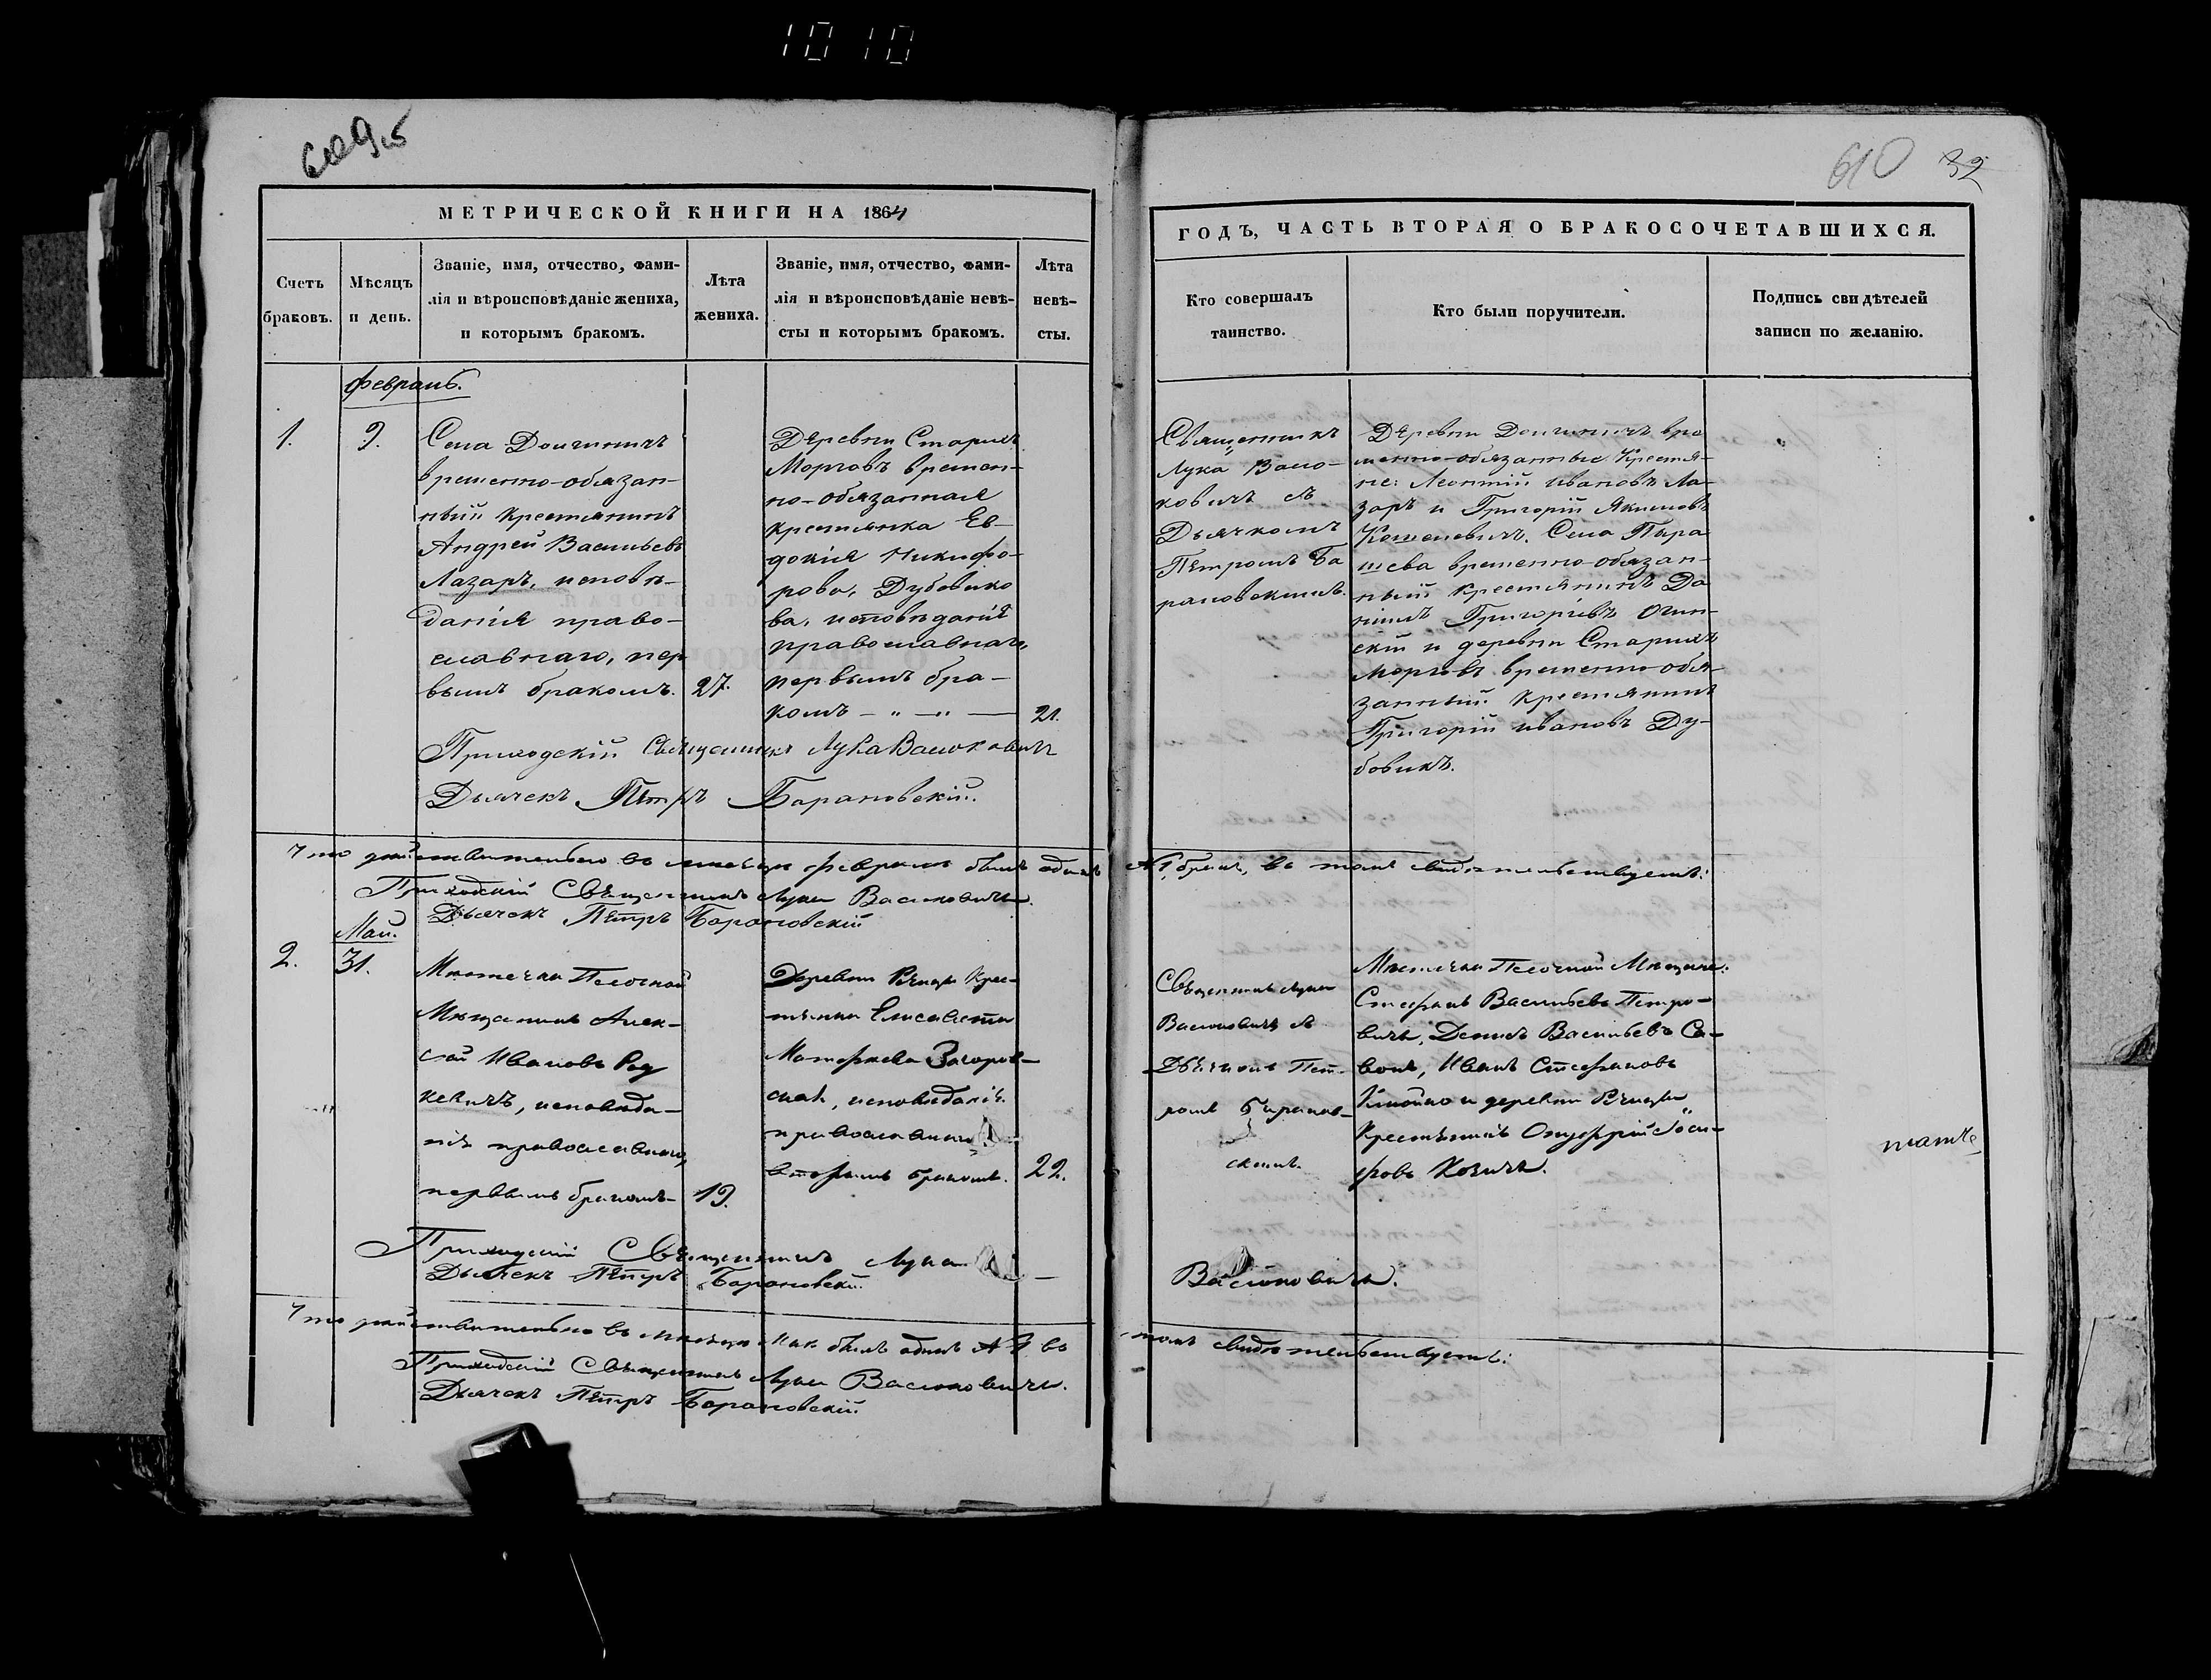 1010
609об
610 32
МЕТРИЧЕСКОЙ КНИГИ НА 1864
Счетъ браковъ.
Мѣсяцъ и день.
Званіе, имя, отчество, фами-
лія и вѣроисповѣданіе жениха,
и которымъ бракомъ.
Лѣта жениха.
Званіе, имя, отчество, фами-
лія и вѣроисповѣданіе невѣ-
сты и которымъ бракомъ.
Лѣта невѣ-
сты.
ГОДЪ, ЧАСТЬ ВТОРАЯ О БРАКОСОЧЕТАВШИХСЯ.
Кто совершалъ
таинство.
Кто были поручители.
Подпись свидѣтелей
записи по желанію.
Февраль.
1.
9.
Села Долгиничъ
временно-обязан-
ный крестянинъ
Андрей Васильевъ
Лазаръ, исповѣ-
данія право-
славнаго, пер
вымъ бракомъ.
27.
Деревни Старыхъ
Морговъ времен-
но-обязанная
крестянка Ев-
докія Никифо-
рова, Дубовико
ва, исповѣданія
православнаго,
первымъ бра-
комъ — „ — „ —
21.
Священникъ
Лука Васю-
ковичъ съ
Дьячкомъ
Петромъ Ба
рановскимъ.
Деревни Долгиничъ вре
менно-обязанные Крестя-
не: Леонтій Ивановъ Ла-
заръ и Григорій Якимовъ
Села Пыра
шева временно-обязан-
ный крестянинъ Да
ніилъ Григоріевъ Огин-
скій и деревни Старыхъ
Морговъ временно-обя-
занный Крестянинъ
Григорій Ивановъ Ду-
бовикъ.
Приходскій Священникъ Лука Васюковичъ
Дьячекъ Петръ Барановскій.
Что дѣйствительно въ мѣсяцѣ февралѣ былъ одинъ № 1, бракъ, въ томъ свидѣтельствуемъ:
Приходскій Священникъ Лука Васюковичъ.
Дьячекъ Петръ Барановскій
Май.
2.
31.
Мѣстечка Песочной
Мѣщанинъ Алек-
сѣй Ивановъ Род
кевичъ, исповѣда-
нія православнаго,
первымъ бракомъ—
19.
Деревни Рѣчицы Крес-
тянка Елисавета
Матфѣева Загоров-
ская, исповѣданія
православнаго
вторымъ бракомъ.
22.
Священникъ Лука
Васюковичъ съ
Дьячкомъ Пет-
ромъ Баранов-
скимъ.
Мѣстечка Песочной Мѣщане:
Стефанъ Васильевъ Петро-
вичъ, Денисъ Васильевъ Са-
Иванъ Стефановъ
и деревни Рѣчицы
Крестянинъ Онуфрій Іоси-
фовъ Козичъ.
Приходскій Священникъ Лука Васюковичъ.
Дьячекъ Петръ Барановскій.
Что дѣйствительно въ мѣсяцѣ Маѣ былъ одинъ № 1 въ томъ свидѣтельствуемъ:
Приходскій Священникъ Лука Васюковичъ.
Дьячекъ Петръ Барановскій